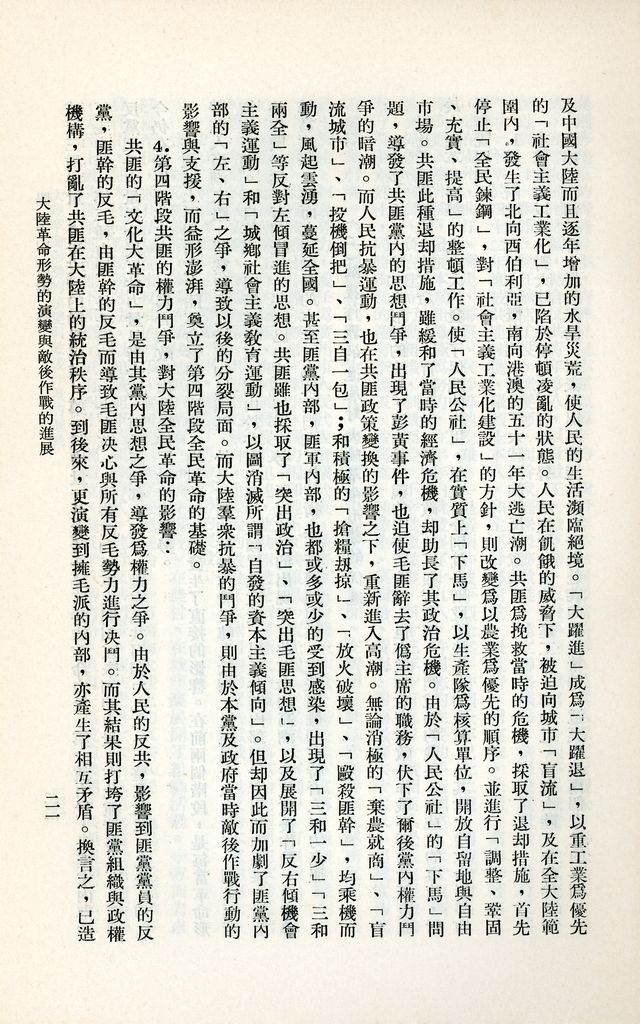 及中國大陸而且逐年增加的水旱災荒，使人民的生活瀕臨絕境。「大躍進」成爲「大躍退」，以重工業爲優先
的「社會主義工業化」，已陷於停頓凌亂的狀態。人民在飢餓的威脅下，被迫向城市「盲流」，及在全大陸範
圍內，發生了北向西伯利亞，南向港澳的五十一年大逃亡潮。共匪爲挽救當時的危機，採取了退却措施，首先
停止「全民鍊鋼」，對「社會主義工業化建設」的方針，則改變爲以農業爲優先的順序。並進行「調整、鞏固
、充實、提高」的整頓工作。使「人民公社」，在實質上「下馬」，以生產隊爲核算單位，開放自留地與自由
市場。共匪此種退却措施，雖緩和了當時的經濟危機，却助長了其政治危機。由於「人民公社」的「下馬」問
題，導發了共匪黨內的思想鬥爭，出現了彭黃事件，也迫使毛匪辭去了僞主席的職務，伏下了爾後黨內權力鬥
爭的暗潮。而人民抗暴運動，也在共匪政策變換的影響之下，重新進入高潮。無論消極的「棄農就商」、「盲
流城市」、「投機倒把」、「三自一包」；和積極的「搶糧刼掠」、「放火破壞」、「毆殺匪幹」，均乘機而
動，風起雲湧，蔓延全國。甚至匪黨內部，匪軍內部，也都或多或少的受到感染，出現了「三和一少」「三和
兩全」等反對左傾冒進的思想。共匪雖也採取了「突出政治」、「突出毛匪思想」，以及展開了「反右傾機會
主義運動」和「城鄉社會主義敎育運動」，以圖消滅所謂「自發的資本主義傾向」。但却因此而加劇了匪黨內
部的「左、右」之爭，導致以後的分裂局面。而大陸羣衆抗暴的鬥爭，則由於本黨及政府當時敵後作戰行動的
影響與支援，而益形澎湃，奠立了第四階段全民革命的基礎。
4.第四階段共匪的權力鬥爭，對大陸全民革命的影響：
共匪的「文化大革命」，是由其黨內思想之爭，導發爲權力之爭。由於人民的反共，影響到匪黨黨員的反
黨，匪幹的反毛，由匪幹的反毛而導致毛匪决心與所有反毛勢力進行决鬥。而其結果則打垮了匪黨組織與政權
機構，打亂了共匪在大陸上的統治秩序。到後來，更演變到擁毛派的內部，亦產生了相互矛盾。換言之，已造
大陸革命形勢的演變與敵後作戰的進展
二一